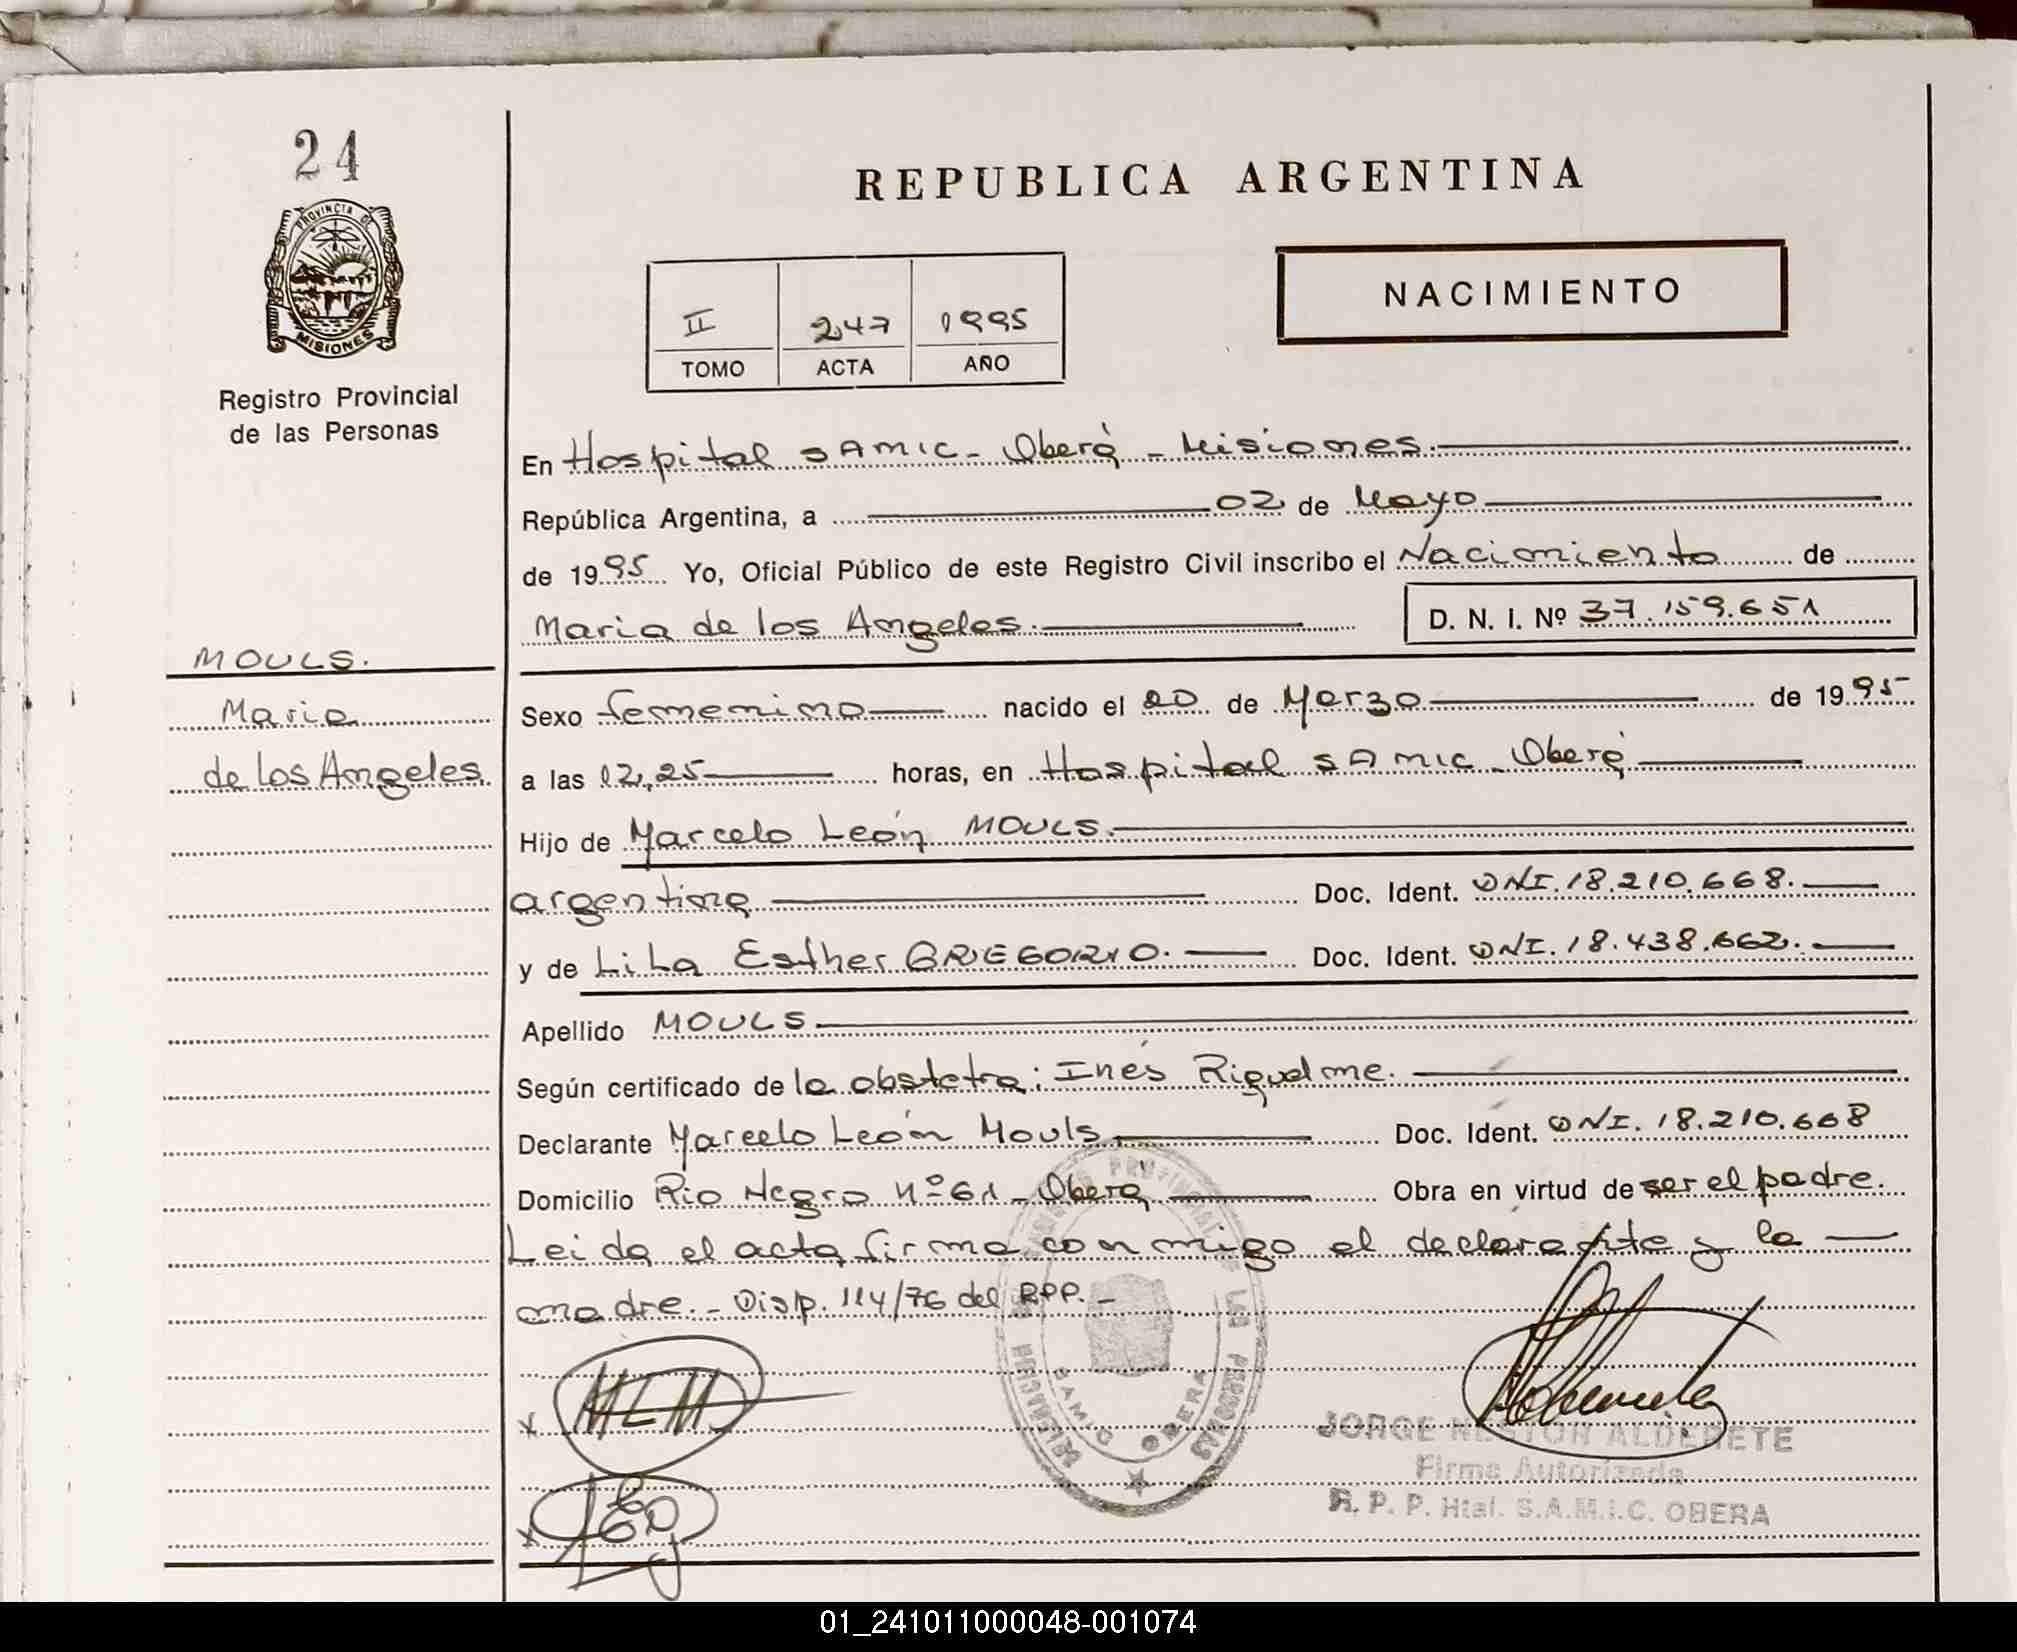 24
REPUBLICA ARGENTINA
PROVINCIA DE
MISIONES
NACIMIENTO
II 247 1995
TOMO ACTA AÑO
Registro Provincial
de las Personas
En Hospital SAMIC - Oberá - Misiones.
República Argentina, a 02 de Mayo
de 1995 Yo, Oficial Público de este Registro Civil inscribo el Nacimiento de
Maria de los Angeles. D. N. I. Nº 37.159.651
MOULS.
Maria
de los Angeles.
Sexo femenino nacido el 20 de Marzo de 1995
a las 12,25 horas, en Hospital SAMIC - Oberá
Hijo de Marcelo León MOULS.
argentina Doc. Ident. DNI. 18.210.668.
y de Lila Esther GREGORIO. Doc. Ident. DNI. 18.438.662.
Apellido MOULS
Según certificado de la obstetra: Inés Riquelme.
Declarante Marcelo León Mouls Doc. Ident. DNI. 18.210.668
Domicilio Rio Negro Nº 61 - Oberá Obra en virtud de ser el padre.
Leida el acta firma conmigo el declarante y la
madre. - Disp. 114/76 del RPP. -
x MLM
x
SAMIC OBERA
JORGE NESTOR ALDERETE
Firma Autorizada
R. P. P. Htal. S.A.M.I.C. OBERA
01_241011000048-001074